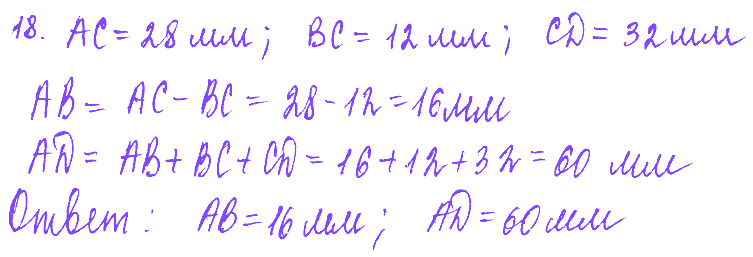 18. AC = 28 мм; BC = 12 мм; CD = 32 мм
AB = AC - BC = 28 - 12 = 16 мм
AD = AB + BC + CD = 16 + 12 + 32 = 60 мм
Ответ: AB = 16 мм; AD = 60 мм